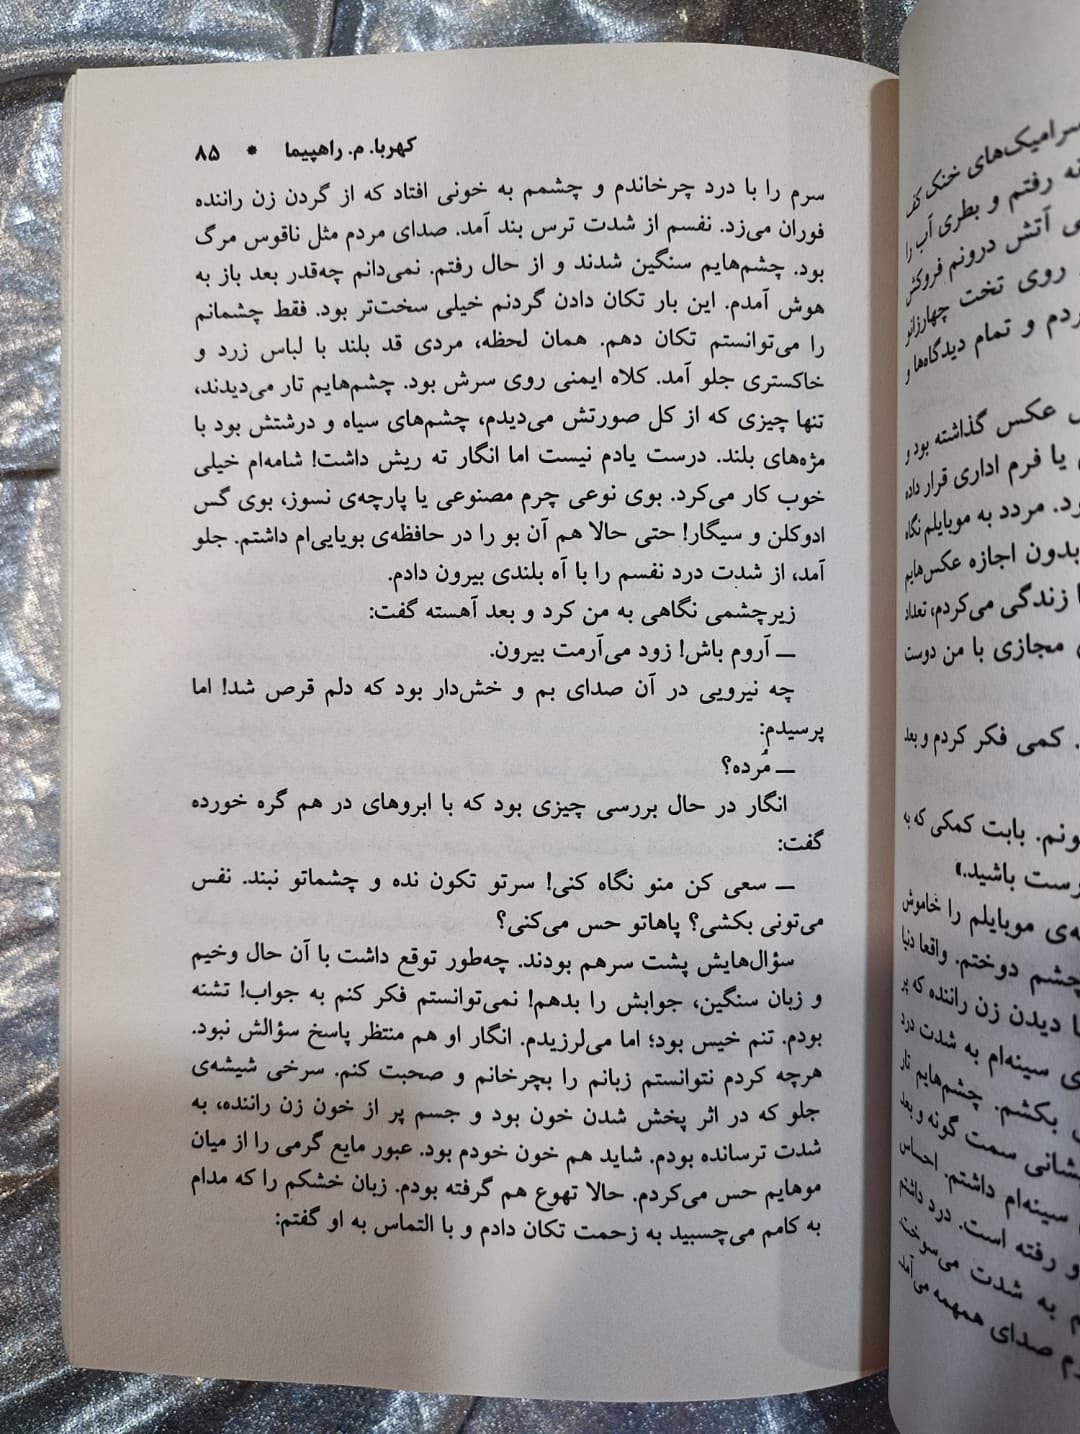 کهربا. م. راهپیما * ۸۵
سرم را با درد چرخاندم و چشمم به خونی افتاد که از گردن زن راننده
فوران می‌زد. نفسم از شدت ترس بند آمد. صدای مردم مثل ناقوس مرگ
بود. چشم‌هایم سنگین شدند و از حال رفتم. نمی‌دانم چه‌قدر بعد باز به
هوش آمدم. این بار تکان دادن گردنم خیلی سخت‌تر بود. فقط چشمانم
را می‌توانستم تکان دهم. همان لحظه، مردی قد بلند با لباس زرد و
خاکستری جلو آمد. کلاه ایمنی روی سرش بود. چشم‌هایم تار می‌دیدند،
تنها چیزی که از کل صورتش می‌دیدم، چشم‌های سیاه و درشتش بود با
مژه‌های بلند. درست یادم نیست اما انگار ته ریش داشت! شامه‌ام خیلی
خوب کار می‌کرد. بوی نوعی چرم مصنوعی یا پارچه‌ی نسوز، بوی گس
ادوکلن و سیگار! حتی حالا هم آن بو را در حافظه‌ی بویایی‌ام داشتم. جلو
آمد، از شدت درد نفسم را با آه بلندی بیرون دادم.
زیرچشمی نگاهی به من کرد و بعد آهسته گفت:
ـــ آروم باش! زود می‌آرمت بیرون.
چه نیرویی در آن صدای بم و خش‌دار بود که دلم قرص شد! اما
پرسیدم:
ـــ مُرده؟
انگار در حال بررسی چیزی بود که با ابروهای در هم گره خورده
گفت:
ـــ سعی کن منو نگاه کنی! سرتو تکون نده و چشماتو نبند. نفس
می‌تونی بکشی؟ پاهاتو حس می‌کنی؟
سؤال‌هایش پشت سرهم بودند. چه‌طور توقع داشت با آن حال وخیم
و زبان سنگین، جوابش را بدهم! نمی‌توانستم فکر کنم به جواب! تشنه
بودم. تنم خیس بود؛ اما می‌لرزیدم. انگار او هم منتظر پاسخ سؤالش نبود.
هرچه کردم نتوانستم زبانم را بچرخانم و صحبت کنم. سرخی شیشه‌ی
جلو که در اثر پخش شدن خون بود و جسم پر از خون زن راننده، به
شدت ترسانده بودم. شاید هم خون خودم بود. عبور مایع گرمی را از میان
موهایم حس می‌کردم. حالا تهوع هم گرفته بودم. زبان خشکم را که مدام
به کامم می‌چسبید به زحمت تکان دادم و با التماس به او گفتم:
سرامیک‌های خنک کف
رفتم و بطری آب را
آتش درونم فروکش
روی تخت چهارزانو
و تمام دیدگاه‌ها و
عکس گذاشته بود و
یا فرم اداری قرار داده
مردد به موبایلم نگاه
بدون اجازه عکس‌هایم
زندگی می‌کردم، تعداد
مجازی با من دوست
کمی فکر کردم و بعد
بابت کمکی که به
باشید.»
موبایلم را خاموش
چشم دوختم. واقعا دنیا
دیدن زن راننده که پر
سینه‌ام به شدت درد
بکشم. چشم‌هایم تار
سمت گونه و بعد
سینه‌ام داشتم. احساس
و رفته است. درد داشتم
به شدت می‌سوخت.
صدای همهمه می‌آمد.